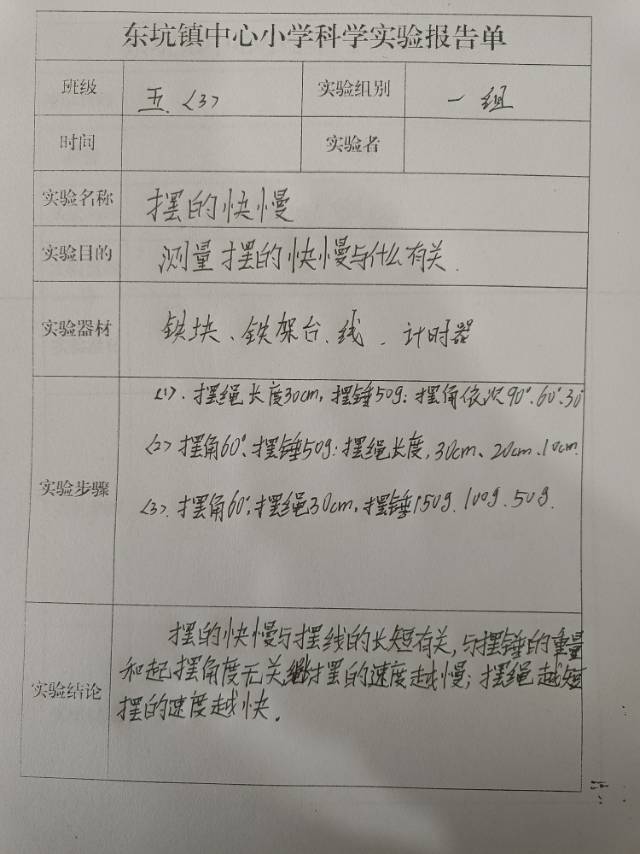 东坑镇中心小学科学实验报告单
班级 五.<3> 实验组别 一组
时间 实验者
实验名称 摆的快慢
实验目的 测量摆的快慢与什么有关.
实验器材 铁块、铁架台、线、计时器
实验步骤
<1>. 摆绳长度30cm, 摆锤50g: 摆角依次90°.60°.30°
<2> 摆角60°、摆锤50g: 摆绳长度, 30cm、20cm、10cm.
<3>. 摆角60°, 摆绳30cm, 摆锤150g. 100g. 50g.
实验结论
摆的快慢与摆线的长短有关, 与摆锤的重量
和起摆角度无关, 摆的速度越慢; 摆绳越短
摆的速度越快.